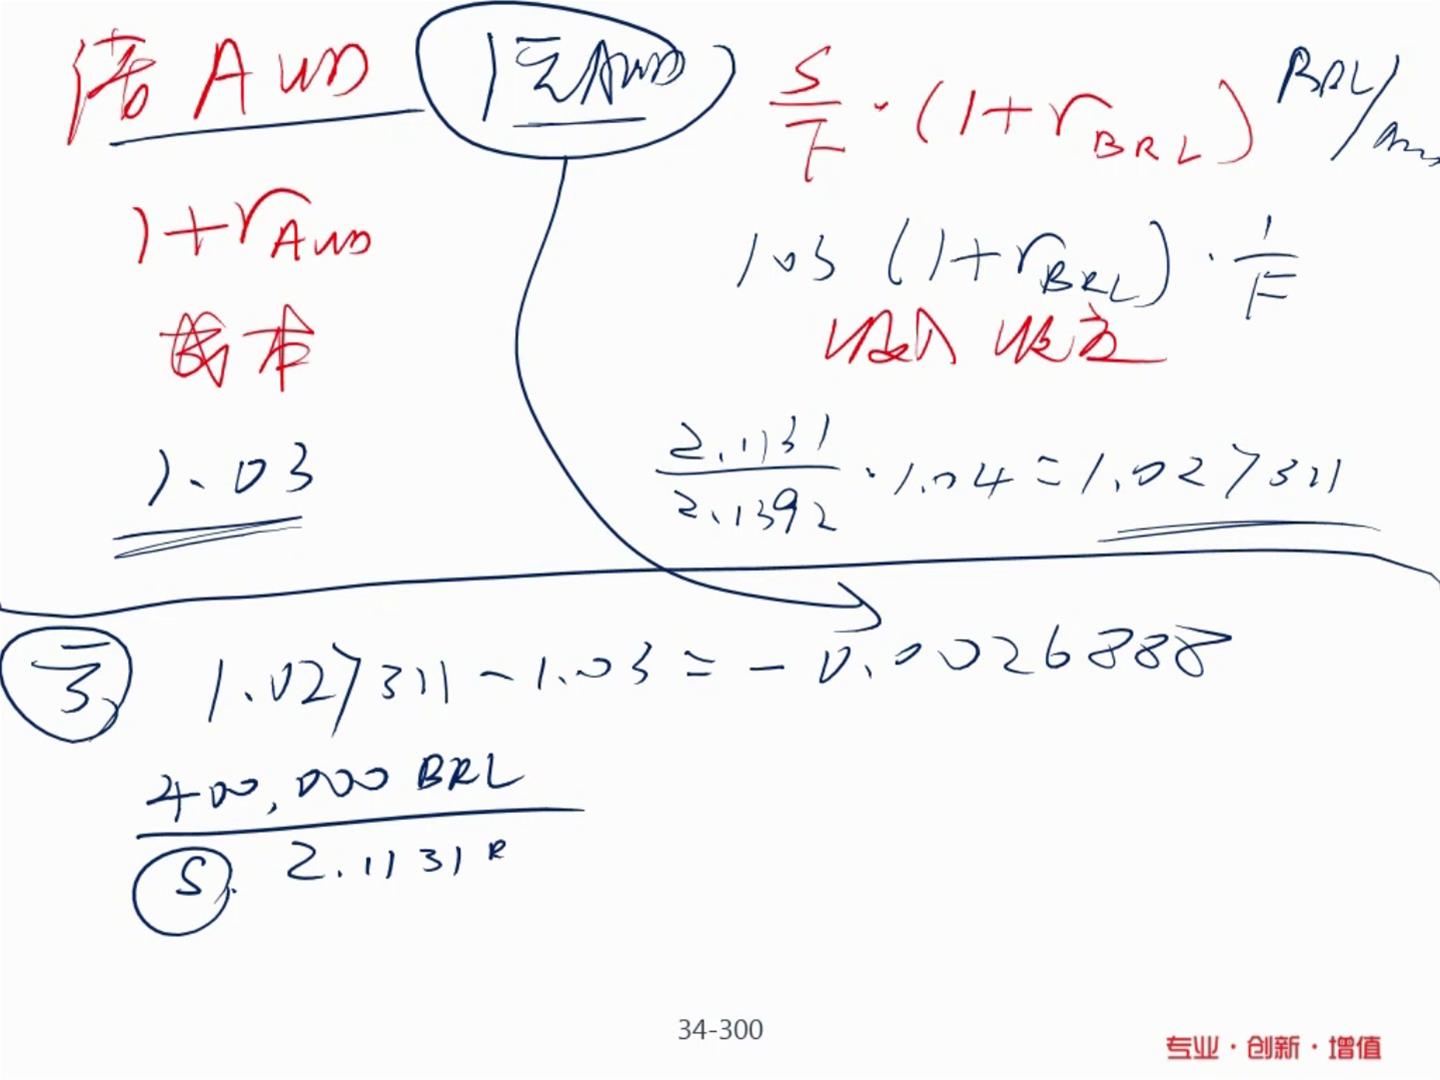 借 AUD 1元AUD S/F · (1+rBRL) BRL/AUD
1+rAUD
1.03 (1+rBRL) · 1/F
成本
收入 收益
1.03
2.1131/2.1392 · 1.04 = 1.027311
1.027311 - 1.03 = - 0.0026888
400,000 BRL
S. 2.1131
34-300
专业·创新·增值